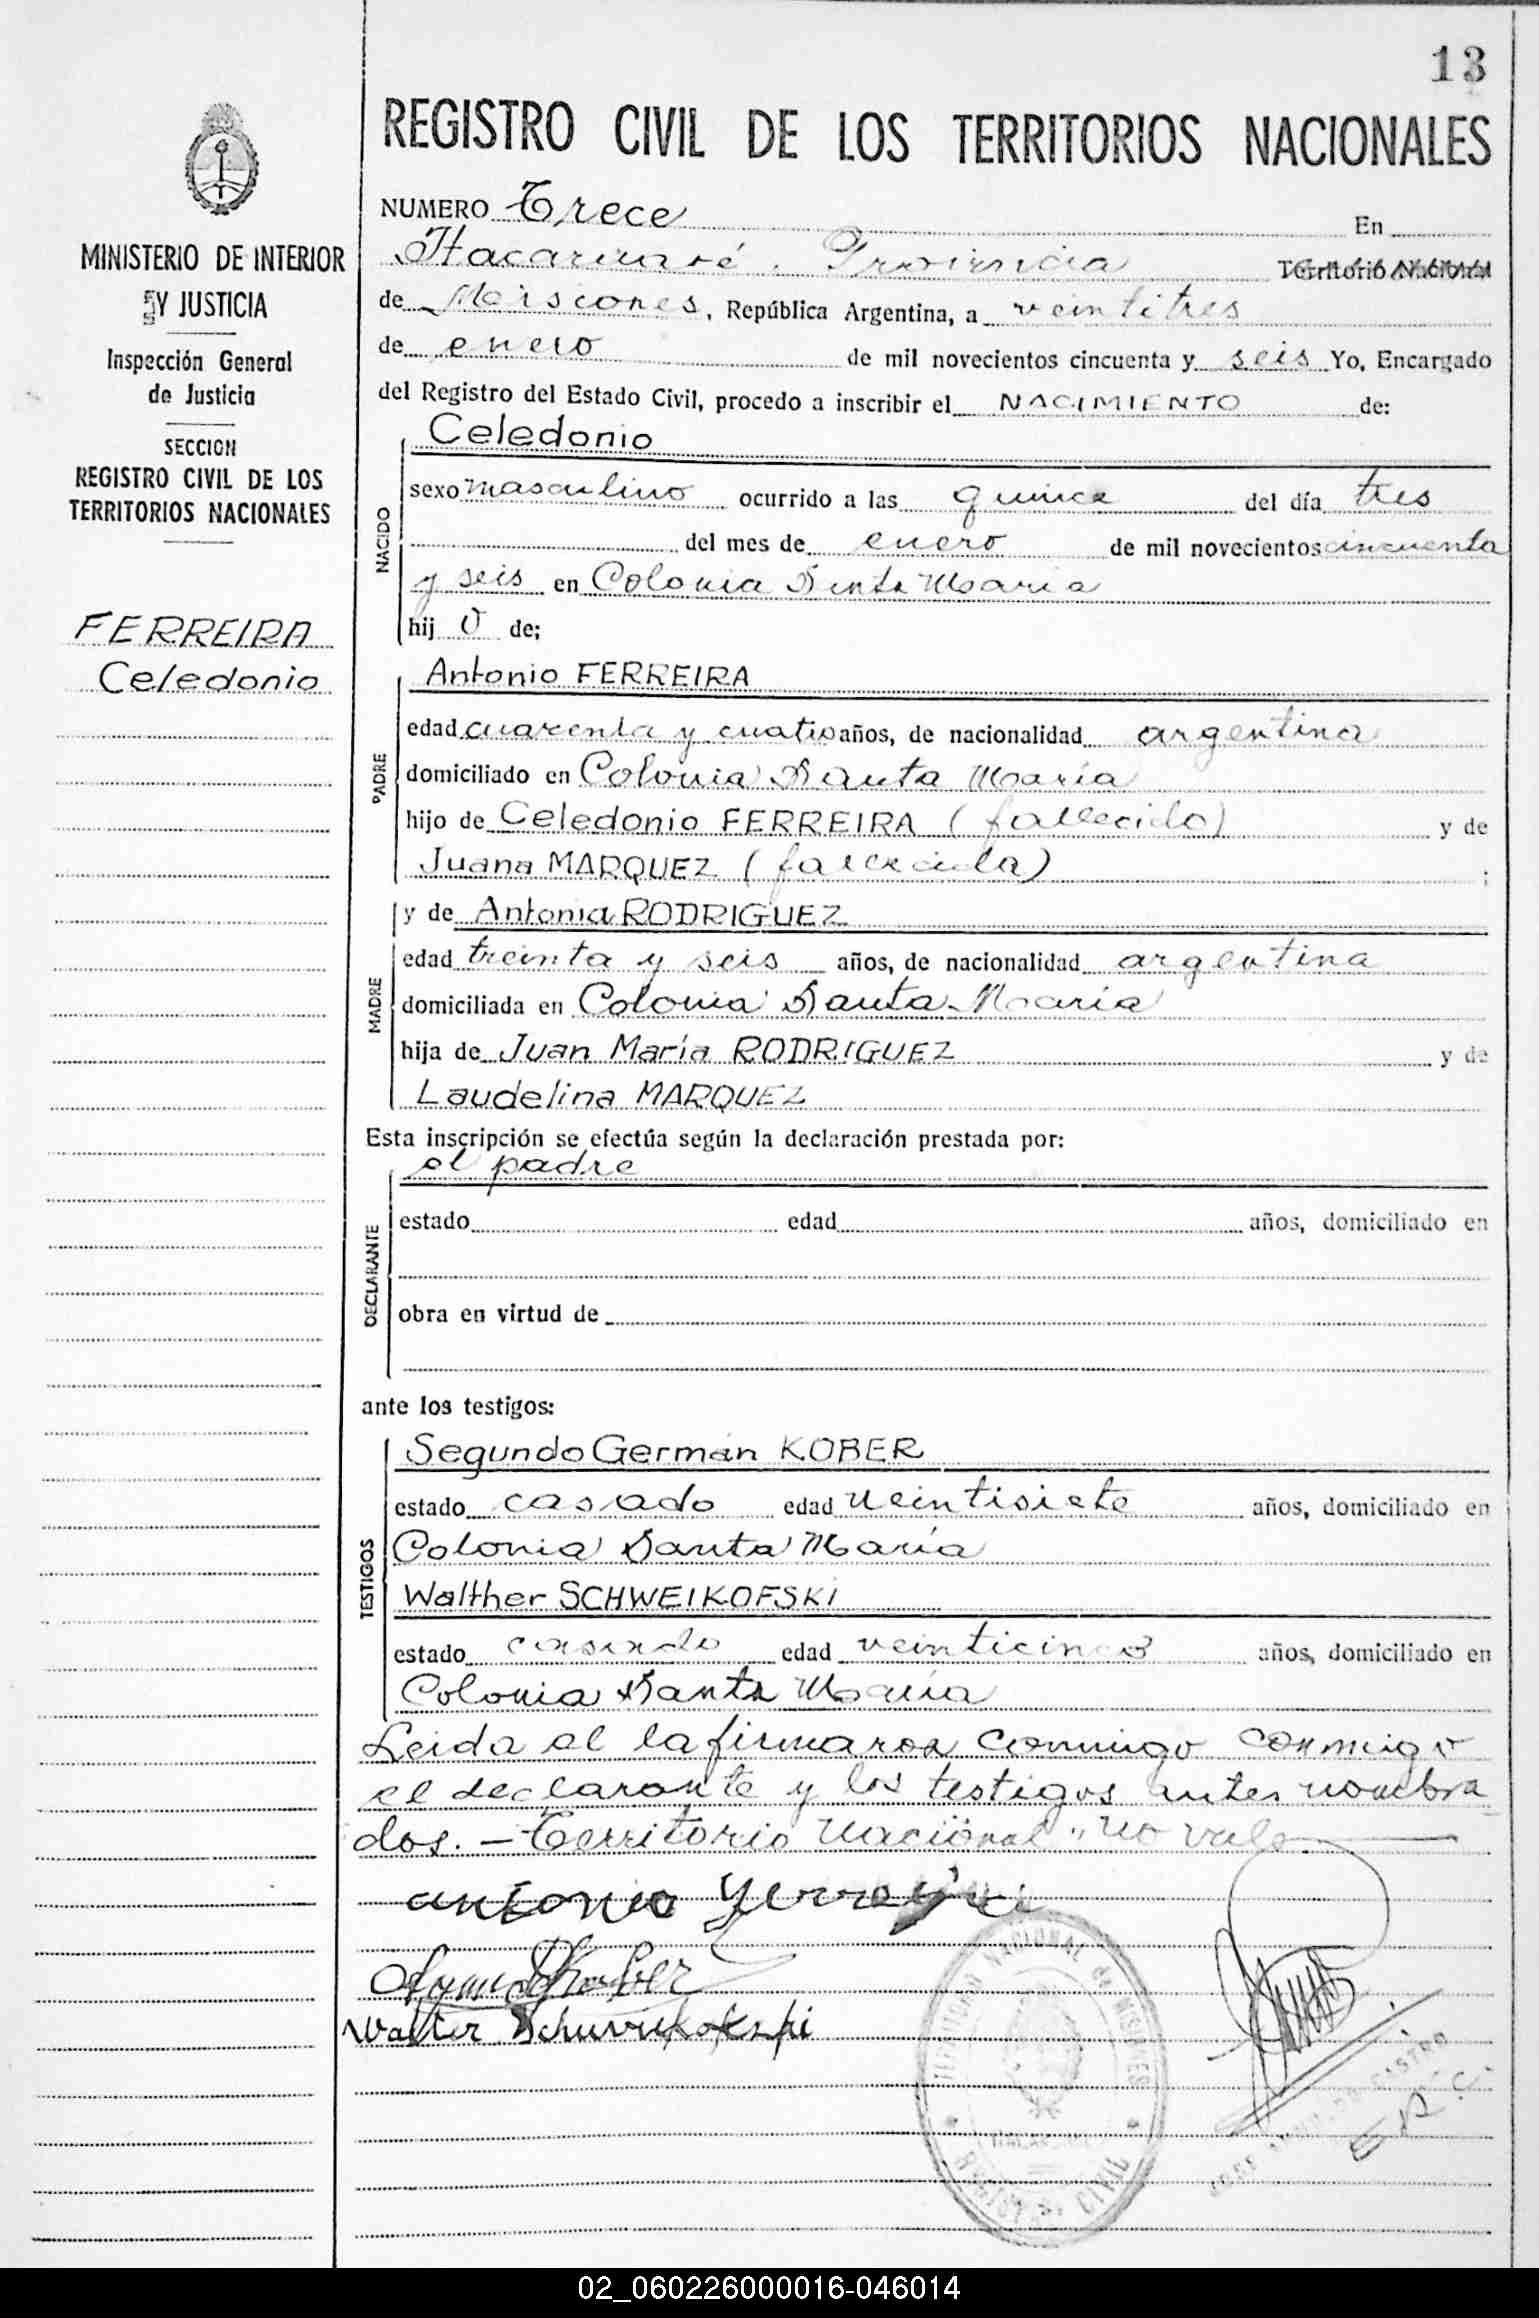 13
REGISTRO CIVIL DE LOS TERRITORIOS NACIONALES
MINISTERIO DE INTERIOR
Y JUSTICIA
Inspección General
de Justicia
SECCION
REGISTRO CIVIL DE LOS
TERRITORIOS NACIONALES
FERREIRA
Celedonio
NUMERO Trece En
Itacaruaré. Provincia Territorio Nacional
de Misiones, República Argentina, a veintitres
de enero de mil novecientos cincuenta y seis Yo, Encargado
del Registro del Estado Civil, procedo a inscribir el NACIMIENTO de:
NACIDO
Celedonio
sexo masculino ocurrido a las quince del día tres
del mes de enero de mil novecientos cincuenta
y seis en Colonia Santa María
hij o de;
PADRE
Antonio FERREIRA
edad cuarenta y cuatro años, de nacionalidad argentina
domiciliado en Colonia Santa María
hijo de Celedonio FERREIRA (fallecido) y de
Juana MARQUEZ (fallecida) ;
MADRE
y de Antonia RODRIGUEZ
edad treinta y seis años, de nacionalidad argentina
domiciliada en Colonia Santa María
hija de Juan María RODRIGUEZ y de
Laudelina MARQUEZ
Esta inscripción se efectúa según la declaración prestada por:
DECLARANTE
el padre
estado edad años, domiciliado en
obra en virtud de
ante los testigos:
TESTIGOS
Segundo Germán KOBER
estado casado edad veintisiete años, domiciliado en
Colonia Santa María
Walther SCHWEIKOFSKI
estado casado edad veinticinco años, domiciliado en
Colonia Santa María
Leida el la firmaron conmigo conmigo
el declarante y los testigos antes nombra
dos. - Territorio Nacional "no vale
antonio Yerreyra
Walter Schweikofski
TERRITORIO NACIONAL de MISIONES
REGISTRO CIVIL
CASTRO
E.R.C.
02_060226000016-046014